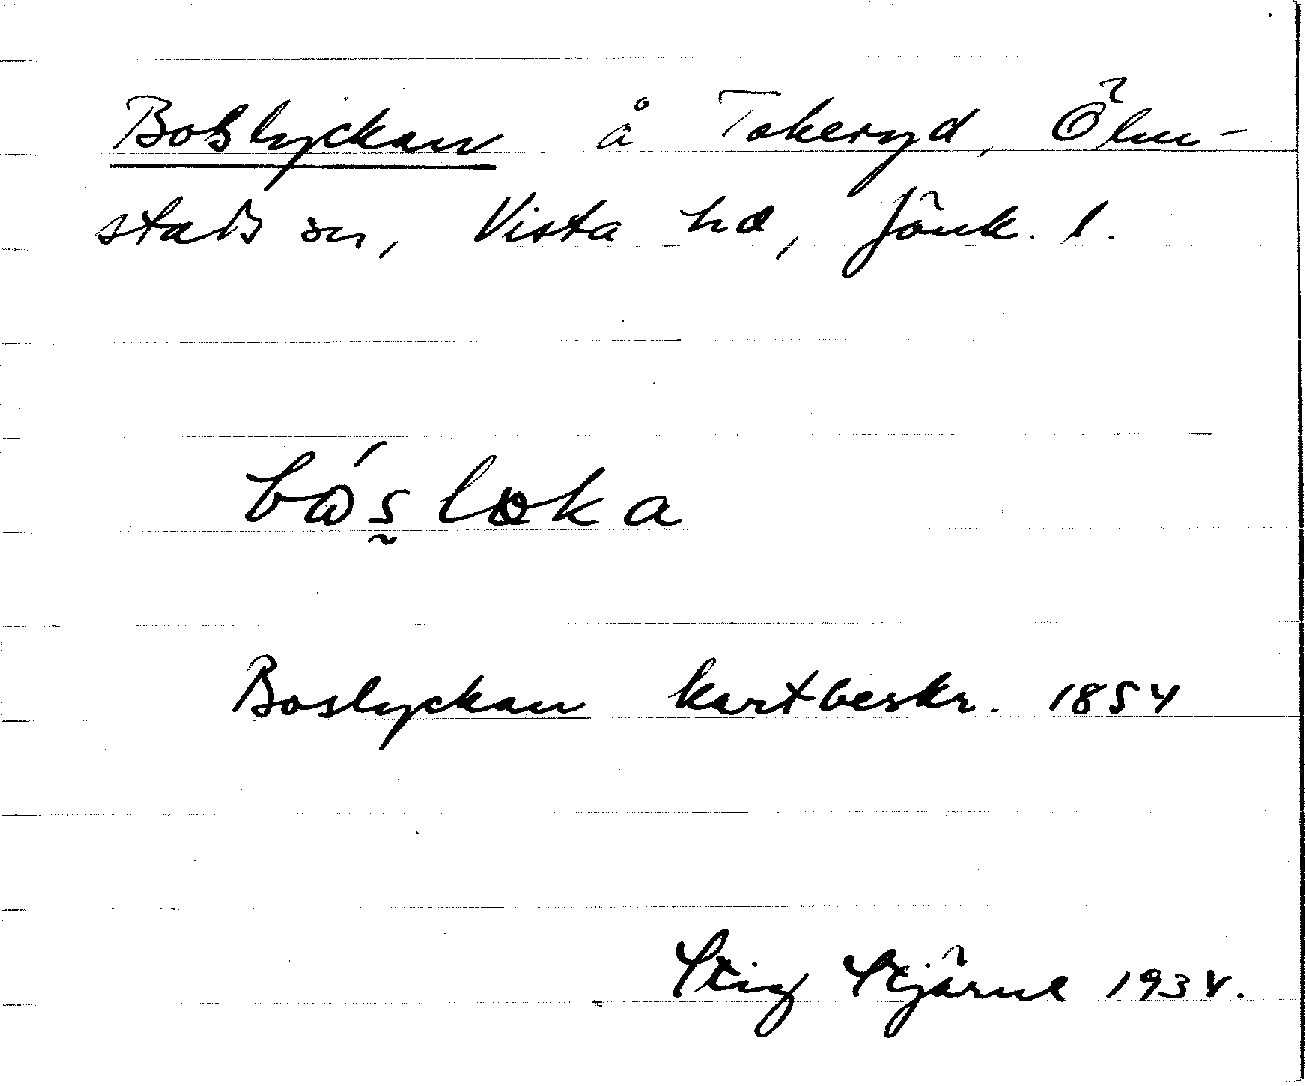 Boslyckan å Takeryd, Ölm-
stads sn, Vista hd, Jönk. l.
Boslyckan kartbeskr. 1854
Stig Stjärne 1934.